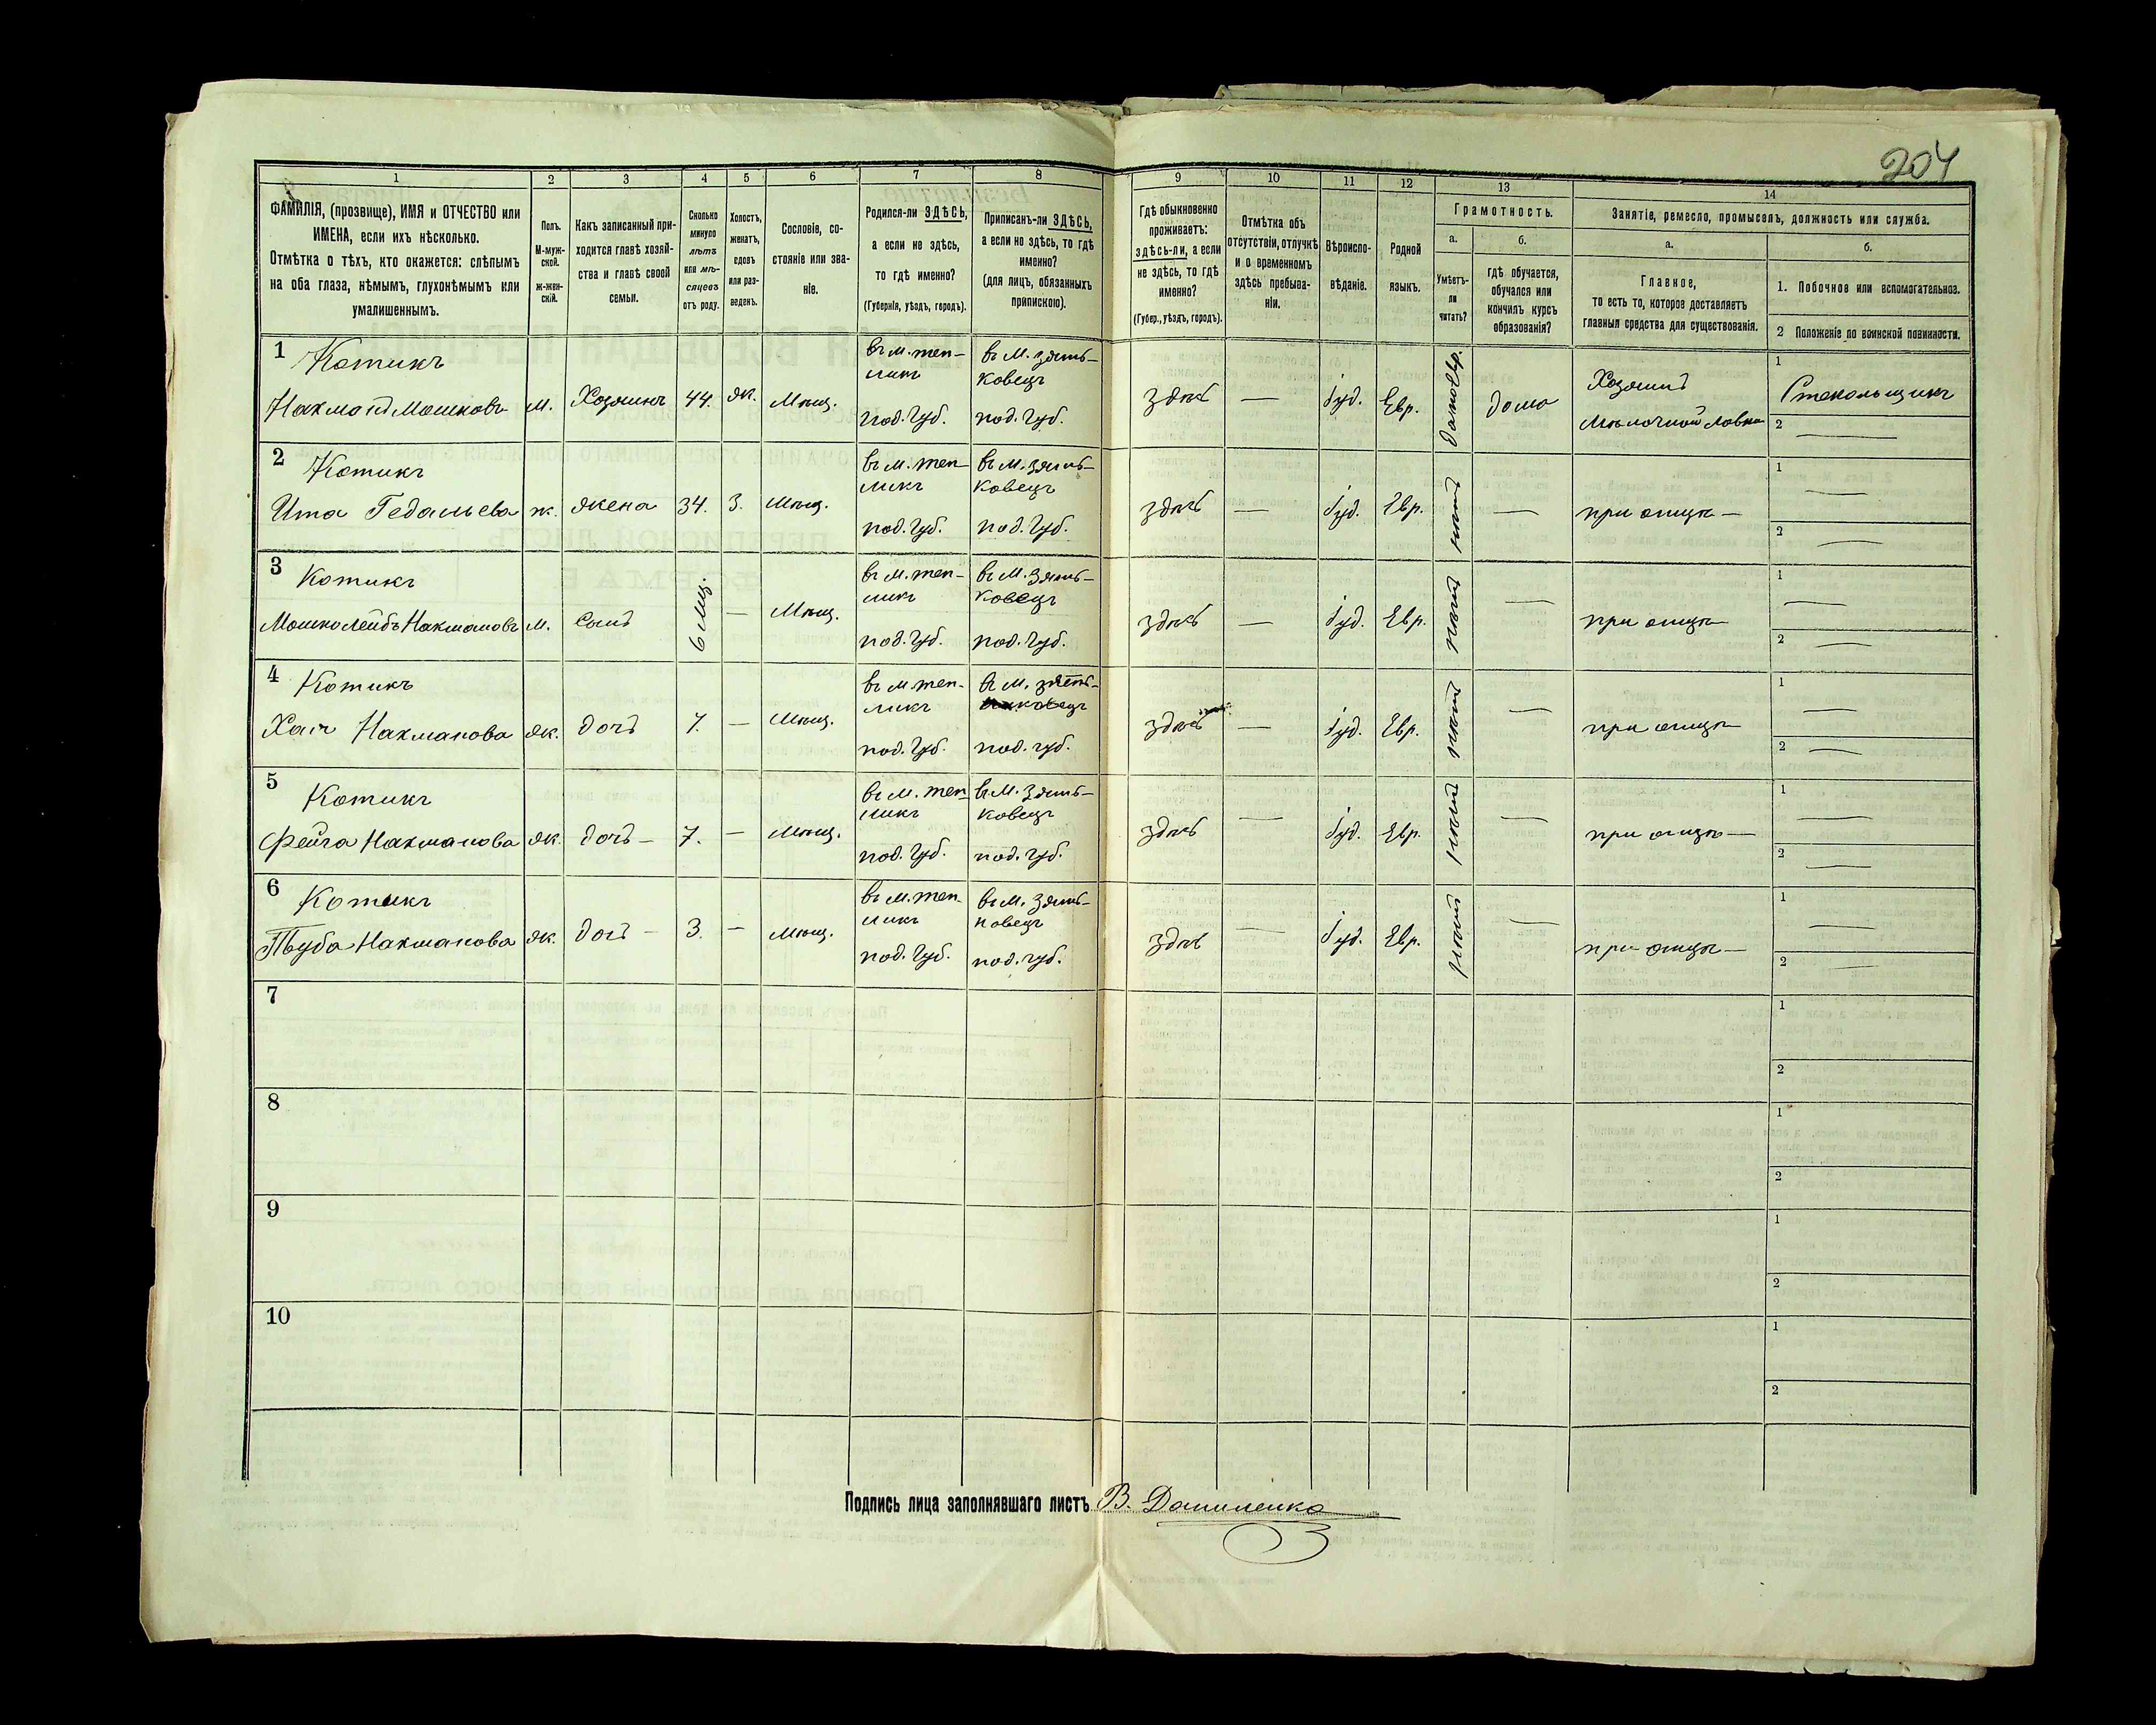 204
1 2 3 4 5 6 7 8 9 10 11 12 13 14
ФАМИЛІЯ, (прозвище), ИМЯ и ОТЧЕСТВО или
ИМЕНА, если ихъ нѣсколько.
Отмѣтка о тѣхъ, кто окажется: слѣпымъ
на оба глаза, нѣмымъ, глухонѣмымъ или
умалишеннымъ.
Полъ.
М-муж-
ской.
ж-жен-
скій.
Какъ записанный при-
ходится главѣ хозяй-
ства и главѣ своей
семьи.
Сколько
минуло
лѣтъ
или мѣ-
сяцевъ
отъ роду.
Холостъ,
женатъ,
вдовъ
или раз-
веденъ.
Сословіе, со-
стояніе или зва-
ніе.
Родился-ли ЗДѢСЬ,
а если не здѣсь,
то гдѣ именно?
(Губернія, уѣздъ, городъ).
Приписанъ-ли ЗДѢСЬ,
а если но здѣсь, то гдѣ
именно?
(для лицъ, обязанныхъ
припискою).
Гдѣ обыкновенно
проживаетъ:
здѣсь-ли, а если
не здѣсь, то гдѣ
именно?
(Губер., уѣздъ, городъ).
Отмѣтка объ
отсутствіи, отлучкѣ
и о временномъ
здѣсь пребыва-
ніи.
Вѣроиспо-
вѣданіе.
Родной
языкъ.
Грамотность.
а.
Умѣетъ-
ли
читать?
б.
гдѣ обучается,
обучался или
кончилъ курсъ
образованія?
Занятіе, ремесло, промыселъ, должность или служба.
а.
Главное,
то есть то, которое доставляетъ
главныя средства для существованія.
б.
1. Побочное или вспомогательное.
2 Положеніе по воинской повинности.
1 Котикъ
Нахманъ Мошковъ
м.
Хозяинъ
44.
ж.
Мѣщ.
въ м. теп-
ликъ
под. губ.
въ м. зять-
ковецъ
под. губ.
здѣсь
—
Іуд.
Евр.
дома
Хозяинъ
мѣлочной лавки
1
Стекольщикъ
2 —
2 Котикъ
Ита Гедальева
ж.
жена
34.
З.
Мѣщ.
въ м. теп-
ликъ
под. губ.
въ м. зять-
ковецъ
под. губ.
здѣсь
—
Іуд.
Евр.
нѣтъ
—
при отцѣ —
1 —
2 —
3 Котикъ
Мошко Лейбъ Нахмановъ
м.
сынъ
6 мѣщ.
—
Мѣщ.
въ м. теп-
ликъ
под. губ.
въ м. зять-
ковецъ
под. губ.
здѣсь
—
Іуд.
Евр.
нѣтъ
—
при отцѣ
1 —
2 —
4 Котикъ
Хая Нахманова
ж.
дочь
7.
—
Мѣщ.
въ м. теп-
ликъ
под. губ.
въ м. зять-
ковецъ
под. губ.
здѣсь
—
Іуд.
Евр.
нѣтъ
—
при отцѣ
1 —
2 —
5 Котикъ
Фейга Нахманова
ж.
дочь —
7.
—
Мѣщ.
въ м. теп-
ликъ
под. губ.
въ м. зять-
ковецъ
под. губ.
здѣсь
—
Іуд.
Евр.
нѣтъ
—
при отцѣ —
1 —
2 —
6 Котикъ
Нахманова
ж.
дочь —
3.
—
Мѣщ.
въ м. теп-
ликъ
под. губ.
въ м. зять-
ковецъ
под. губ.
здѣсь
—
Іуд.
Евр.
нѣтъ
—
при отцѣ —
1 —
2 —
7
1
2
8
1
2
9
1
2
10
1
2
Подпись лица заполнявшаго листъ В. Даниленко